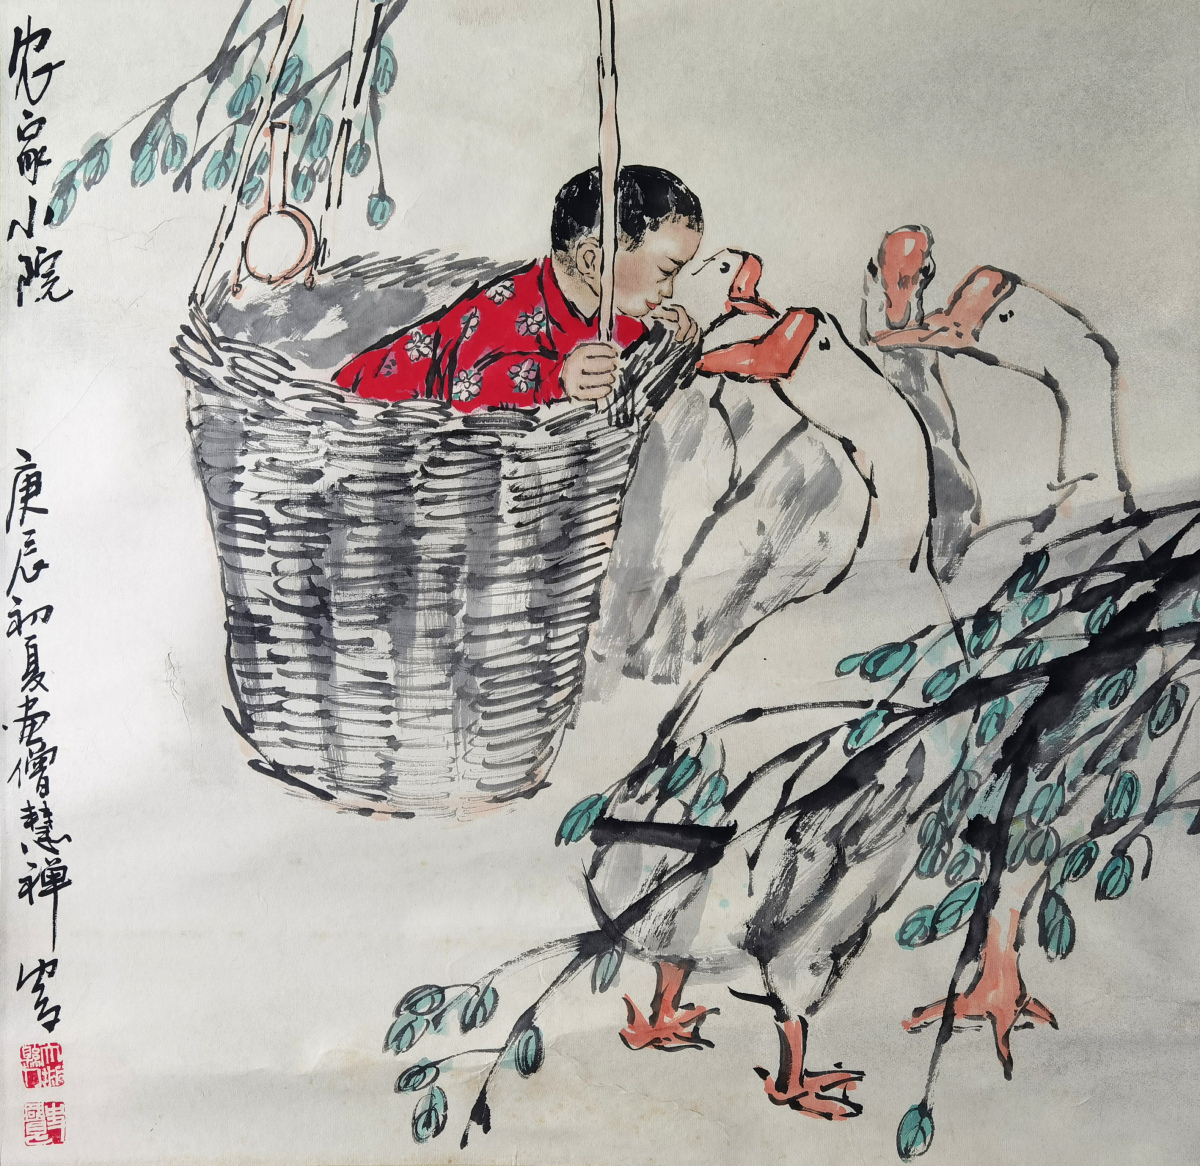 农家小院
庚辰初夏画僧慧禅写